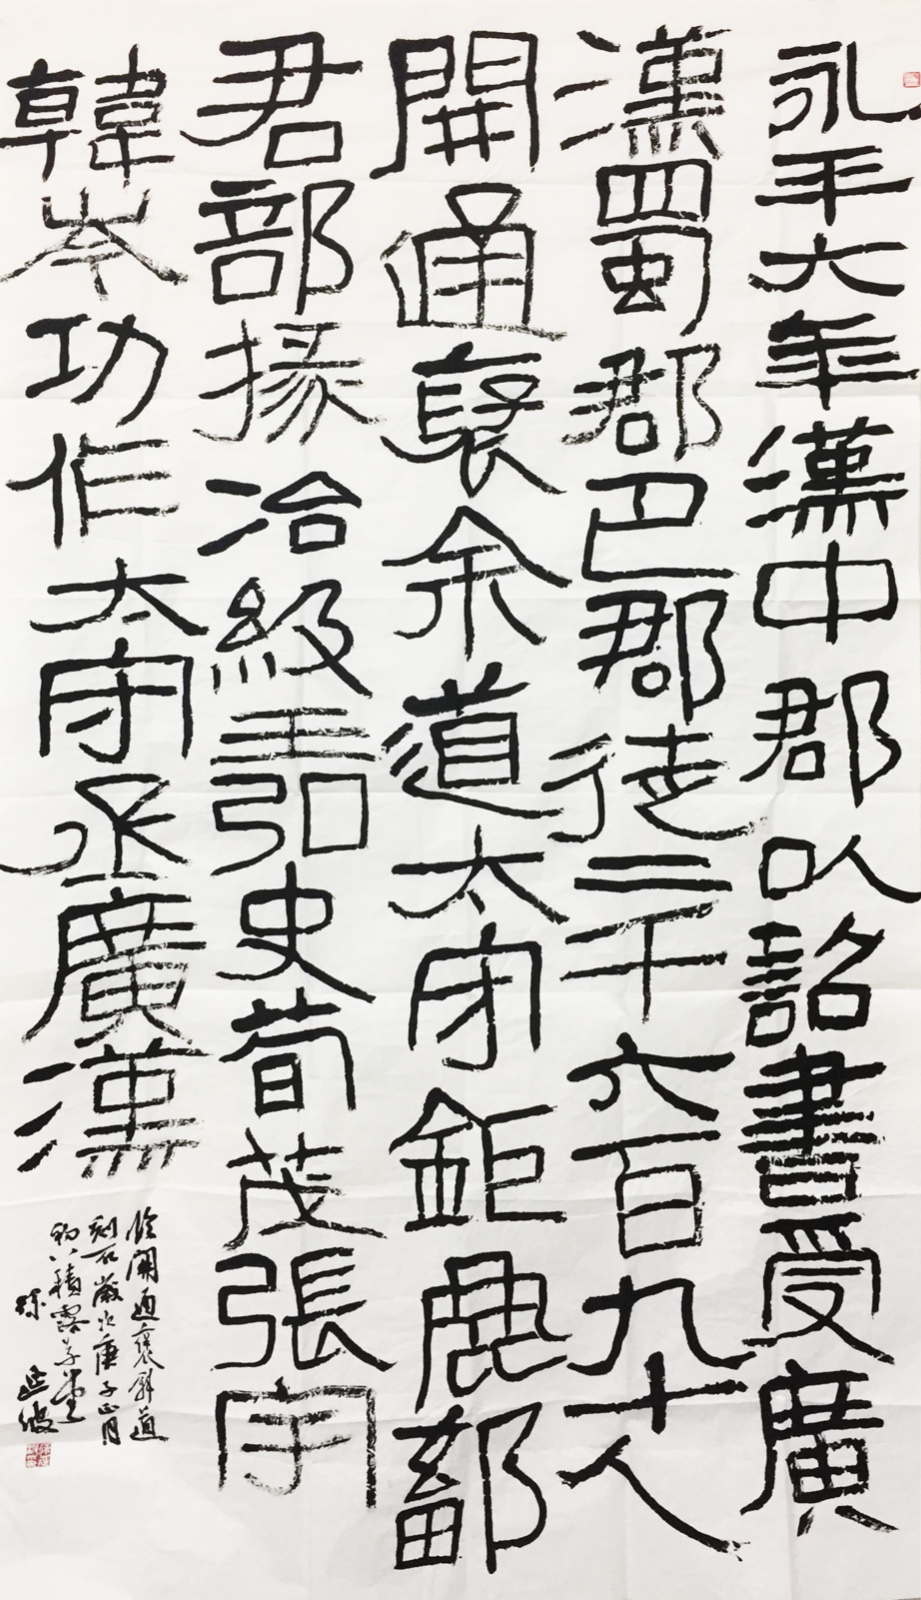 永平六年漢中郡以詔書受廣
漢蜀郡巴郡徒二千六百九十人
開通褒余道太守鉅鹿鄐
君部掾冶級王弘史荀茂張宇
韓岑功作太守丞廣漢
臨開通褒斜道
刻石歲次庚子正月
於積露草堂
延波